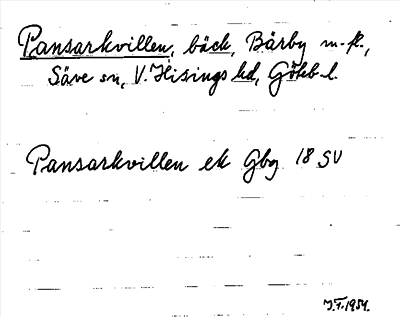 Pansarkvillen, bäck, Bärby m. fl.,
Säve sn, V. Hisings hd, Göteb. l.
Pansarkvillen ek Gbg 18 SV
J.F. 1954.